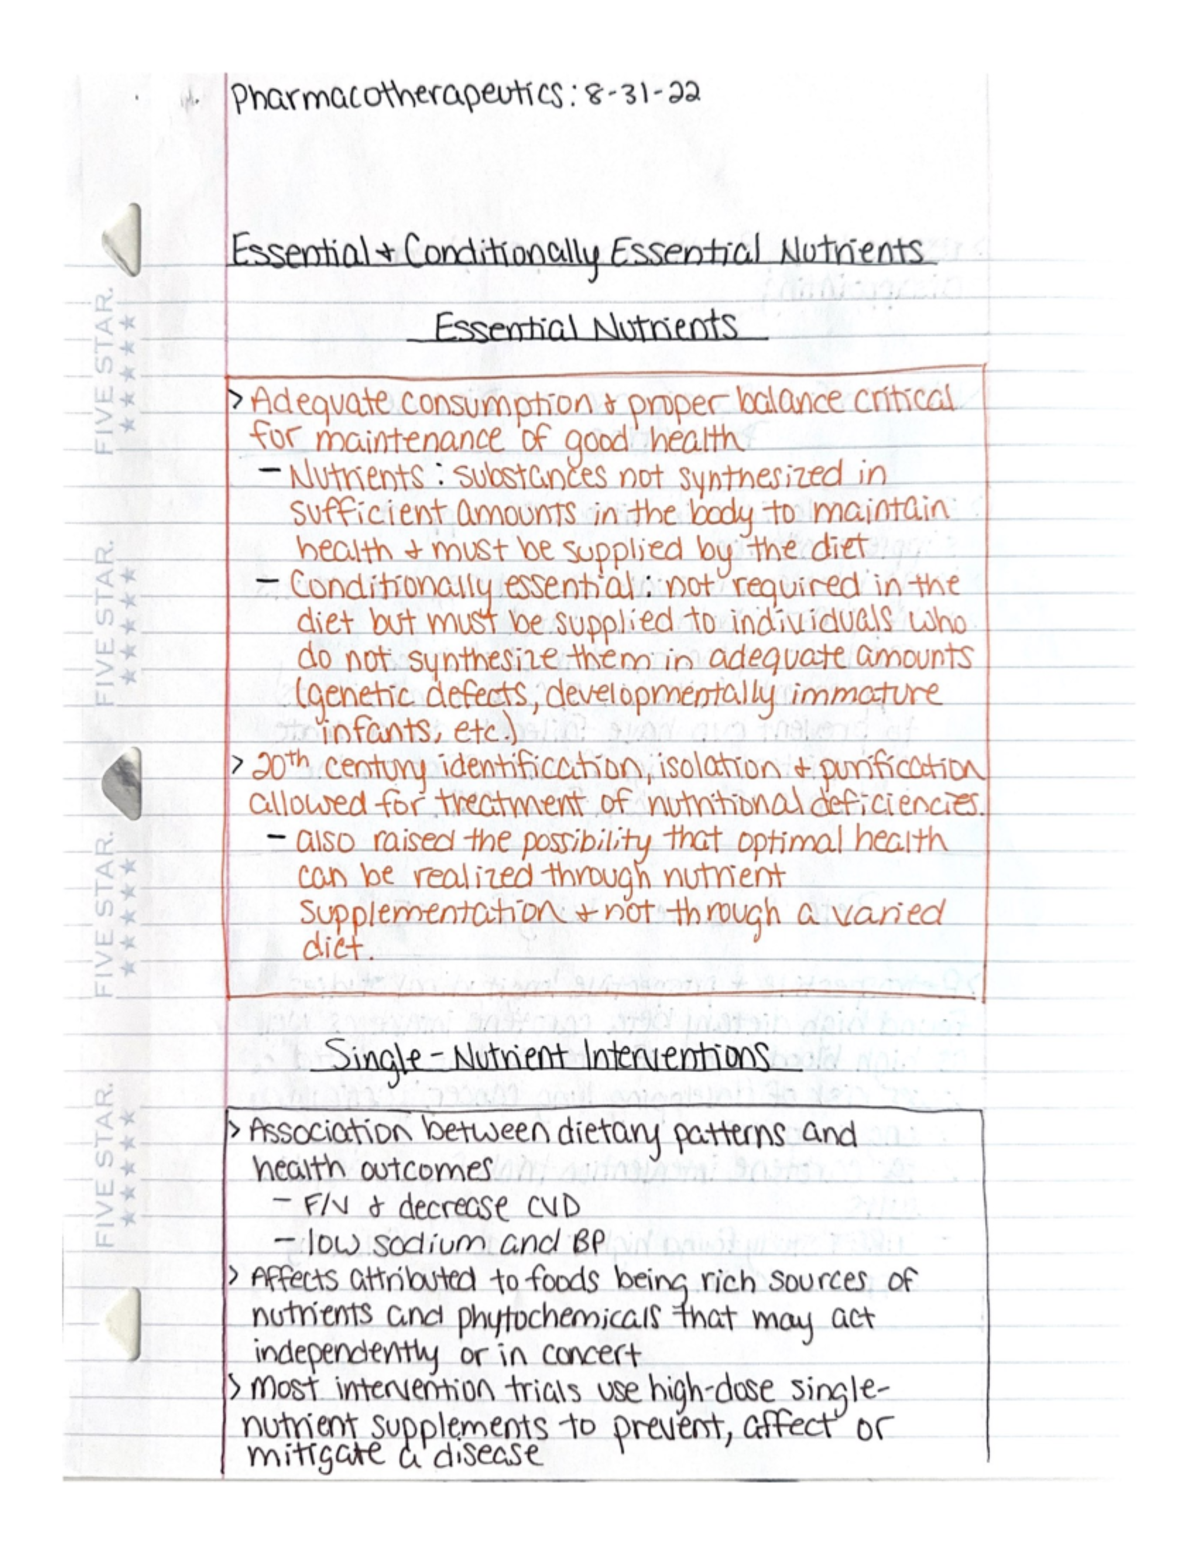 Pharmacotherapeutics: 8-31-22
Essential + Conditionally Essential Nutrients
Essential Nutrients
> Adequate consumption + proper balance critical
for maintenance of good health
- Nutrients: substances not synthesized in
sufficient amounts in the body to maintain
health + must be supplied by the diet.
- Conditionally essential: not required in the
diet but must be supplied to individuals who
do not synthesize them in adequate amounts
(genetic defects, developmentally immature
infants, etc.)
> 20th century identification, isolation + purification
allowed for treatment of nutritional deficiencies.
- also raised the possibility that optimal health
can be realized through nutrient
supplementation + not through a varied
diet.
Single-Nutrient Interventions
> Association between dietary patterns and
health outcomes
- F/V + decrease CVD
- low sodium and BP
> Affects attributed to foods being rich sources of
nutrients and phytochemicals that may act
independently or in concert
> most intervention trials use high-dose single-
nutrient supplements to prevent, affect or
mitigate a disease
FIVE STAR.
FIVE STAR.
FIVE STAR.
FIVE STAR.